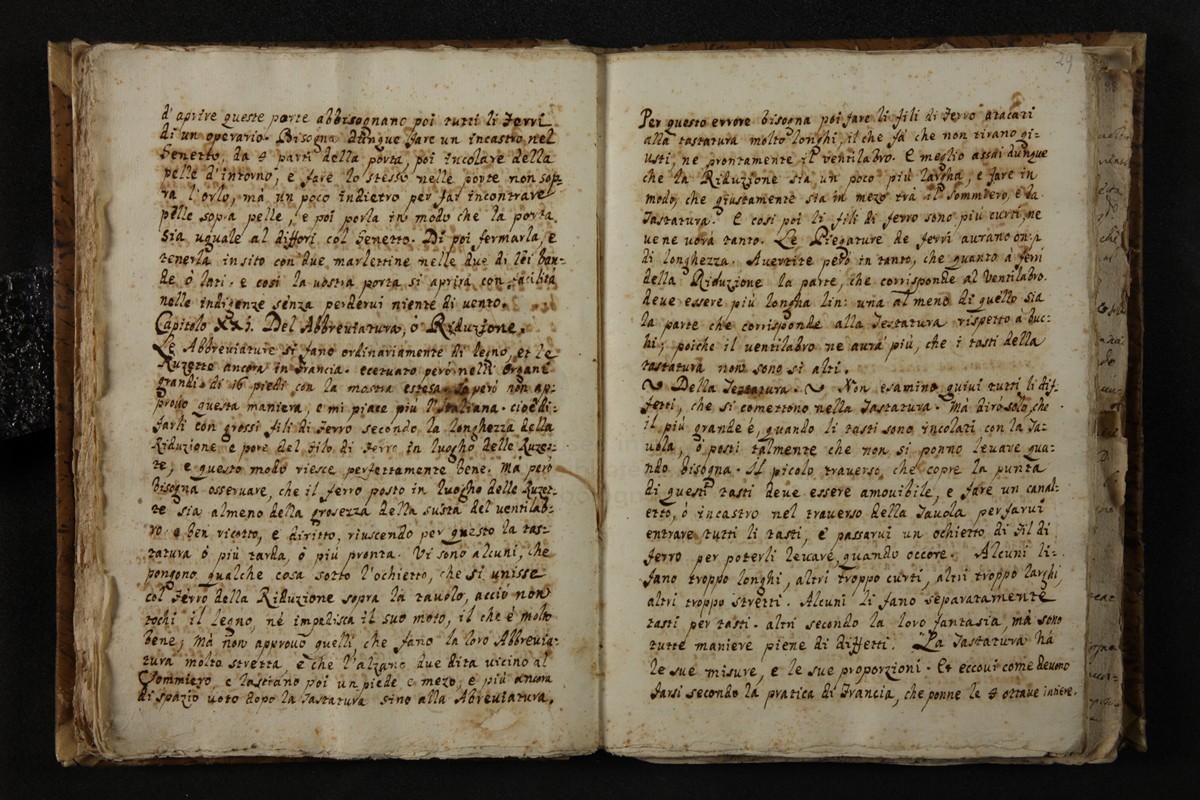 d'aprire queste porte abbisognano poi tutti li Ferri
di un operario. Bisogna dunque fare un incastro nel
Senetto, da 4 parti della porta, poi incolare della
pelle d'intorno, e fare lo stesso nelle porte non sop-
ra l'orlo, mà un poco indietro per far incontrare
pelle sopra pelle, e poi porla in modo che la porta
sia uguale al di fori col Senetto. Di poi fermarla, e
tenerla in sito con due marlettine nelle due di lei ban-
de ò lati. e così la vostra porta si aprirà con facilità
nelle indigenze senza perdervi niente di vento.
Capitolo XX5. Del Abbreviatura, ò Riduzione.
Le Abbreviature si fano ordinariamente di legno, et le
Ruzette ancora in Francia. ecetuato però nelli Organi
grandi di 16 piedi con la mostra estesa. Io però non ap-
provo questa maniera, e mi piace più l'Italiana. cioè di
farli con grossi fili di Ferro secondo la longhezza della
Riduzione e pore del filo di Ferro in luogho delle Ruzet-
te, e questo modo riesce perfettamente bene. Ma però
bisogna osservare, che il ferro posto in luogho delle Ruzet-
te sia almeno della grosezza della susta del ventilab-
ro e ben ricotto, e diritto, riuscendo per questo la tas-
tatura ò più tarda, ò più pronta. Vi sono alcuni, che
pongono qualche cosa sotto l'ochietto, che si unisse
col Ferro della Riduzione sopra la tavolo, acciò non
tochi il legno, nè impedisca il suo moto, il che è molto
bene; Mà non approvo quelli, che fano la loro Abbrevia-
tura molto stretta, e che l'alzano due dita vicino al
Sommiero, e lasciano poi un piede e mezo, e più ancora
di spazio voto dopo la Tastatura sino alla Abreviatura.
29
Per questo errore bisogna poi fare li fili di Ferro atacati
alla tastatura molto longhi, il che fà che non tirano gi-
usti, ne prontamente il ventilabro. E meglio assai dunque
che la Riduzione sia un poco più largha, e fare in
modo, che giustamente sia in mezo trà il Sommiero, e la
Tastatura. E così poi li fili di ferro sono più curti, ne
ve ne vorà tanto. Le Piegature de ferri avrano
di longhezza. Avertite però in tanto, che quanto à ferri
della Riduzione la parte, che corrisponde al ventilabro
deve essere più longha lin: una al meno di quello sia
la parte che corrisponde alla Testatura rispetto à buc-
hi; poiche il ventilabro ne avrà più, che i tasti della
tastatura non sono sì alti.
Della Testatura. Non esamino quivi tutti li dif-
fetti, che si comettono nella Tastatura. Mà dirò solo, che
il più grande è, quando li tasti sono incolati con la Ta-
vola, ò posti talmente che non si ponno levare qua-
ndo bisogna. Il picolo traverso, che copre la punta
di questi tasti deve essere amovibile, e fare un canal-
etto, ò incastro nel traverso della Tavola per farvi
entrare tutti li tasti, e passarvi un ochietto di Fil di
ferro per poterli levare, quando occore. Alcuni li
fano troppo longhi, altri troppo curti, altri troppo larghi,
altri troppo stretti. Alcuni li fano separatamente
tasti per tasti. altri secondo la loro fantasia, mà sono
tutte maniere piene di diffetti. La Tastatura hà
le sue misure, e le sue proporzioni. Et eccovi come devono
farsi secondo la pratica di Francia, che ponne le 4 ottave intiere.